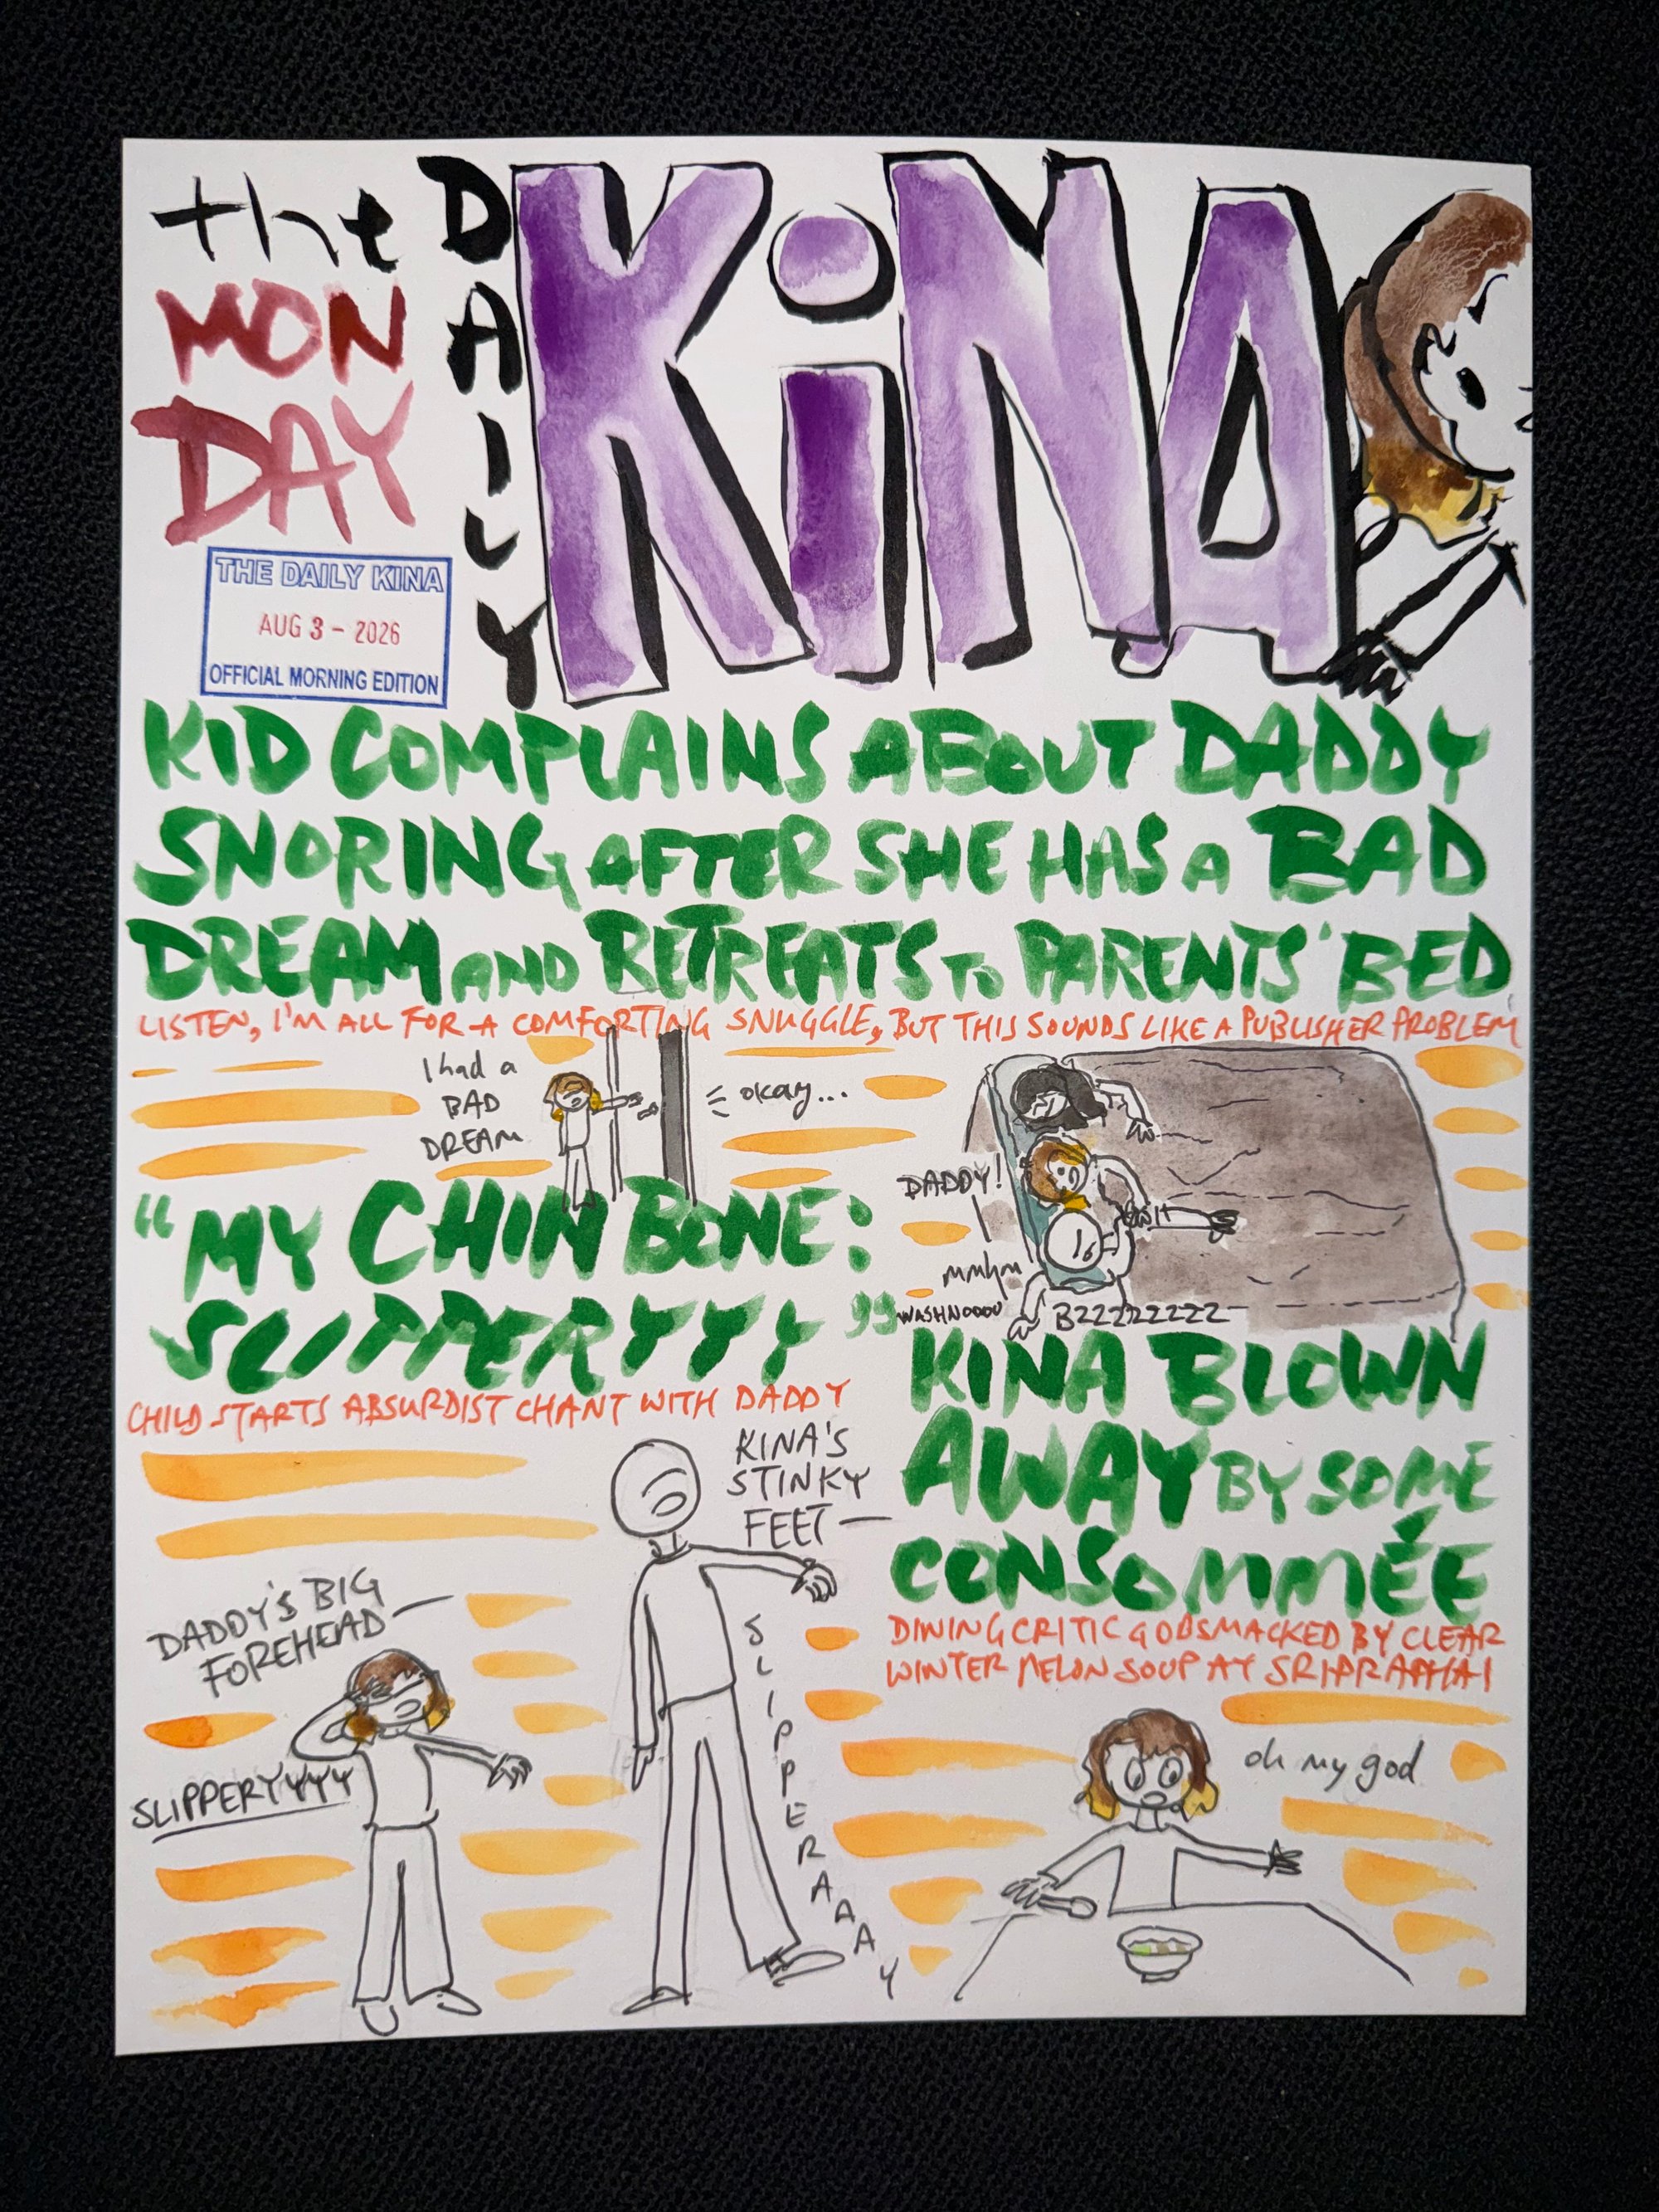 the
MON
DAY
DAILY
KiNA
THE DAILY KINA
AUG 3 - 2026
OFFICIAL MORNING EDITION
KID COMPLAINS ABOUT DADDY
SNORING AFTER SHE HAS A BAD
DREAM AND RETREATS TO PARENTS' BED
LISTEN, I'M ALL FOR A COMFORTING SNUGGLE, BUT THIS SOUNDS LIKE A PUBLISHER PROBLEM
I had a
BAD
DREAM
okay...
DADDY!
mmhm
WASHNOOOU
BZZZZZZZZZ
"MY CHIN BONE:
SLIPPERYYY"
CHILD STARTS ABSURDIST CHANT WITH DADDY
KINA'S
STINKY
FEET
DADDY'S BIG
FOREHEAD
SLIPPERYYYY
SLIPPERAAAY
KINA BLOWN
AWAY BY SOME
CONSOMMÉE
DINING CRITIC GOBSMACKED BY CLEAR
WINTER MELON SOUP AT SRIPRAPHAI
oh my god